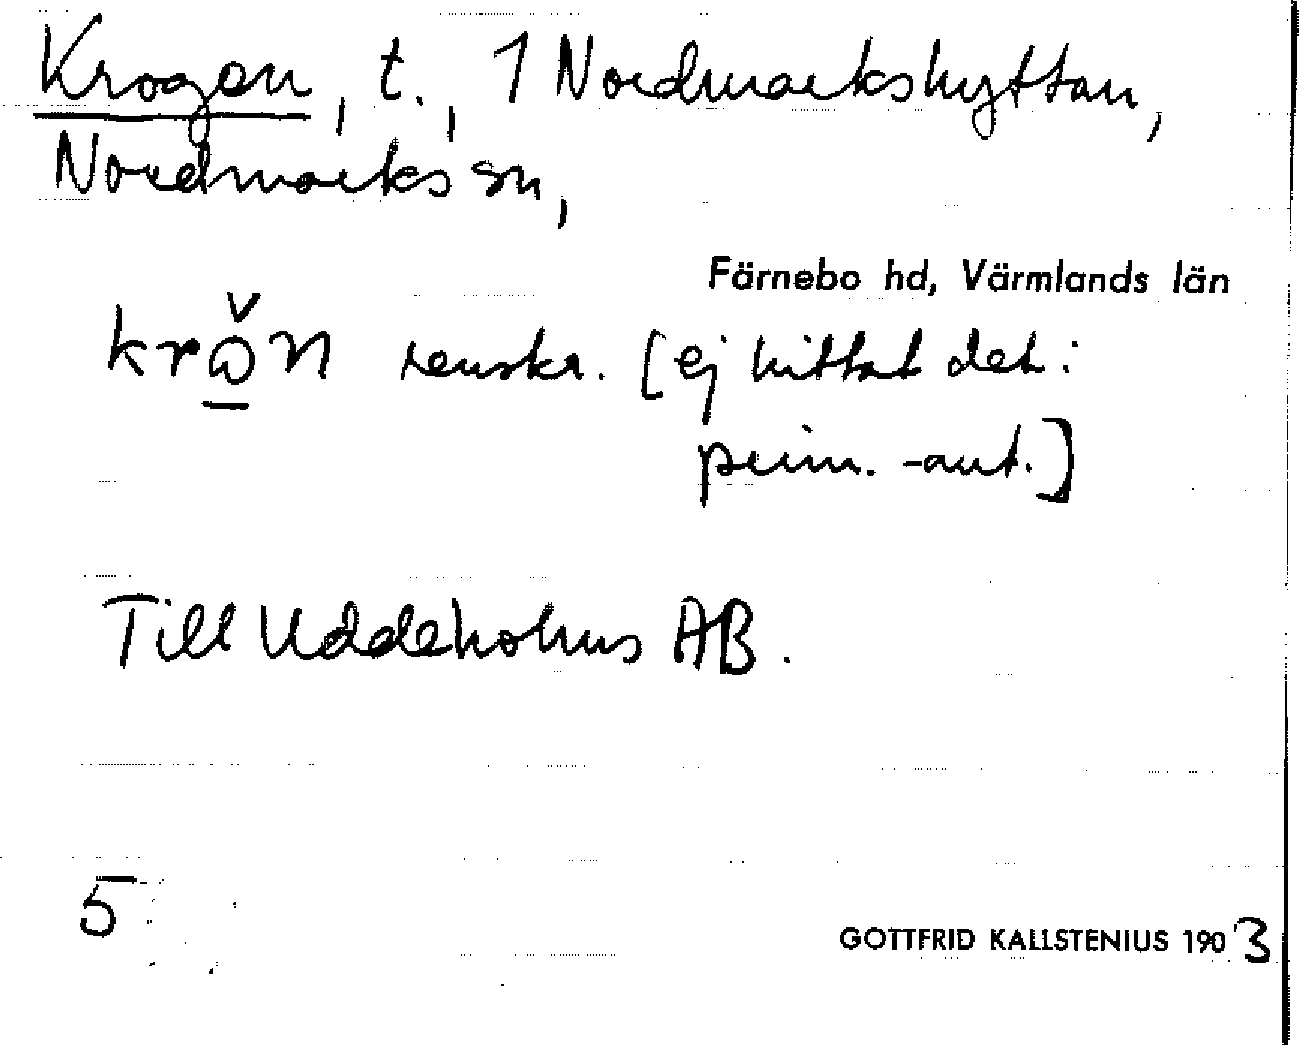 Krogen, t., 1 Nordmarkshyttan,
Nordmarks sn,
Färnebo hd, Värmlands län
renskr. [ej hittat det i
prim.-ant.]
Till Uddeholms AB.
5
GOTTFRID KALLSTENIUS 1903